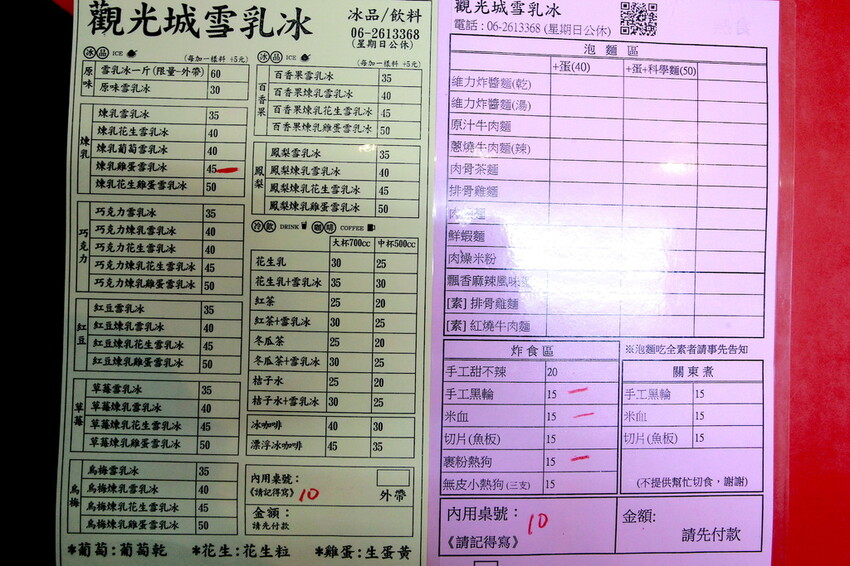 觀光城雪乳冰
冰品/飲料
06-2613368
(星期日公休)
冰品 ICE (每加一樣料 +5元)
原味
雪乳冰一斤(限量-外帶) 60
原味雪乳冰 30
煉乳
煉乳雪乳冰 35
煉乳花生雪乳冰 40
煉乳葡萄雪乳冰 40
煉乳雞蛋雪乳冰 45
煉乳花生雞蛋雪乳冰 50
巧克力
巧克力雪乳冰 35
巧克力煉乳雪乳冰 40
巧克力花生雪乳冰 40
巧克力煉乳花生雪乳冰 45
巧克力煉乳雞蛋雪乳冰 50
紅豆
紅豆雪乳冰 35
紅豆煉乳雪乳冰 40
紅豆煉乳花生雪乳冰 45
紅豆煉乳雞蛋雪乳冰 50
草莓
草莓雪乳冰 35
草莓煉乳雪乳冰 40
草莓煉乳花生雪乳冰 45
草莓煉乳雞蛋雪乳冰 50
烏梅
烏梅雪乳冰 35
烏梅煉乳雪乳冰 40
烏梅煉乳花生雪乳冰 45
烏梅煉乳雞蛋雪乳冰 50
冰品 ICE (每加一樣料 +5元)
百香果
百香果雪乳冰 35
百香果煉乳雪乳冰 40
百香果煉乳花生雪乳冰 45
百香果煉乳雞蛋雪乳冰 50
鳳梨
鳳梨雪乳冰 35
鳳梨煉乳雪乳冰 40
鳳梨煉乳花生雪乳冰 45
鳳梨煉乳雞蛋雪乳冰 50
冷飲 DRINK 咖啡 COFFEE
大杯700cc 中杯500cc
花生乳 30 25
花生乳+雪乳冰 35 30
紅茶 25 20
紅茶+雪乳冰 30 25
冬瓜茶 25 20
冬瓜茶+雪乳冰 30 25
桔子水 25 20
桔子水+雪乳冰 30 25
冰咖啡 40 30
漂浮冰咖啡 45 35
內用桌號：
《請記得寫》 10
外帶
金額：
請先付款
*葡萄：葡萄乾 *花生：花生粒 *雞蛋：生蛋黃
觀光城雪乳冰
電話：06-2613368 (星期日公休)
泡麵區
+蛋(40) +蛋+科學麵(50)
維力炸醬麵(乾)
維力炸醬麵(湯)
原汁牛肉麵
蔥燒牛肉麵(辣)
肉骨茶麵
排骨雞麵
鮮蝦麵
肉燥米粉
飄香麻辣風味
[素] 排骨雞麵
[素] 紅燒牛肉麵
炸食區
手工甜不辣 20
手工黑輪 15
米血 15
切片(魚板) 15
裹粉熱狗 15
無皮小熱狗(三支) 15
※泡麵吃全素者請事先告知
關東煮
手工黑輪 15
米血 15
切片(魚板) 15
(不提供幫忙切食，謝謝)
內用桌號： 10
《請記得寫》
金額:
請先付款